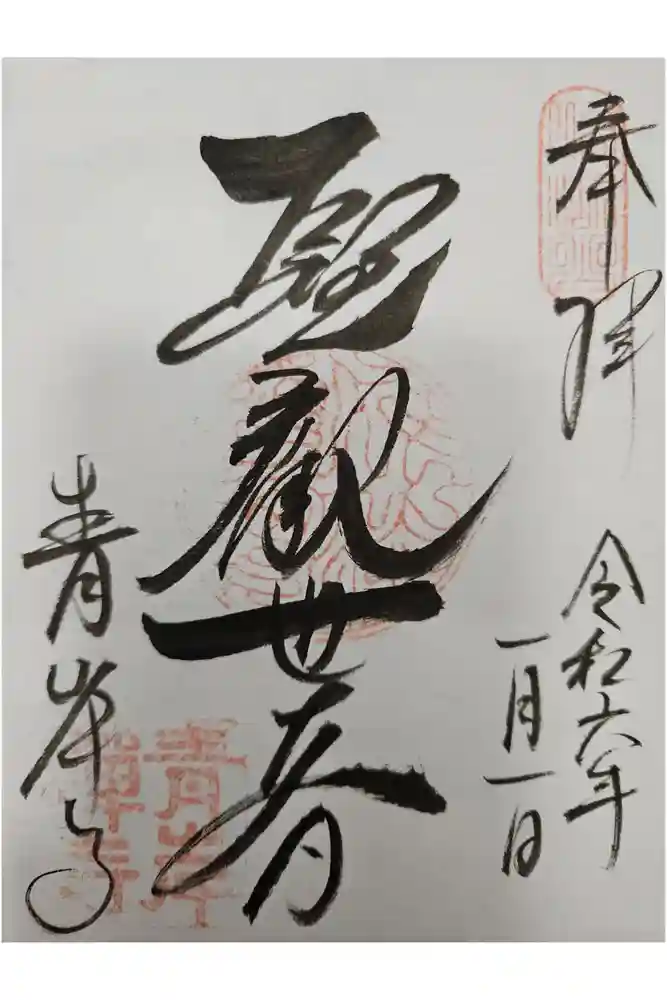 奉拝
令和六年
一月一日
聖観世音
青岸寺